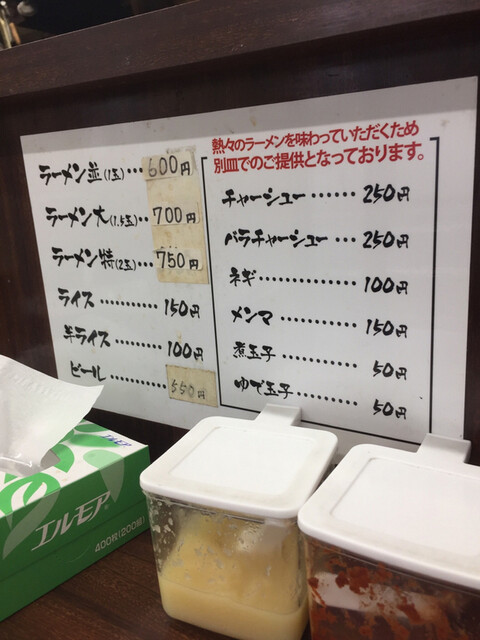 ラーメン並(1玉)…600円
ラーメン大(1.5玉)…700円
ラーメン特(2玉)…750円
ライス…………150円
半ライス…………100円
ビール…………550円
熱々のラーメンを味わっていただくため
別皿でのご提供となっております。
チャーシュー…250円
バラチャーシュー…250円
ネギ…………100円
メンマ…………150円
煮玉子…………50円
ゆで玉子…………50円
エルモア
エルモア
400枚(200組)